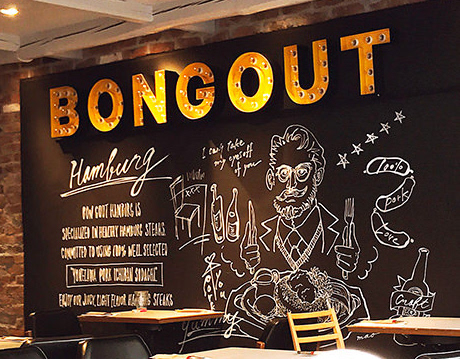 BONGOUT
Hamburg
I can't take
my eyes off
of you
BON GOUT HAMBURG IS
SPECIALIZED IN HEALTHY HAMBURG STEAKS.
COMMITTED TO USING 100% WELL SELECTED
PORK ICHIBAN
ENJOY OUR JUICY, LIGHT FLAVOR HAMBURG STEAKS
100%
pork
Craft
mao